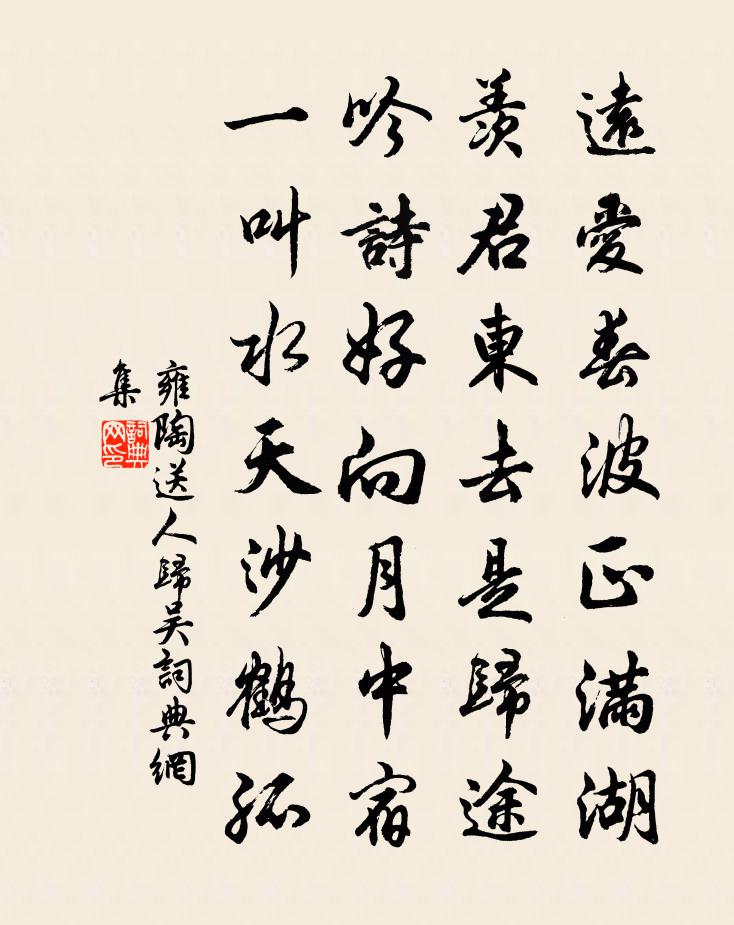 遠愛春波正滿湖
羨君東去是歸途
吟詩好向月中宿
一叫水天沙鶴孤
雍陶送人歸吳詞典網
集
詞典
网印